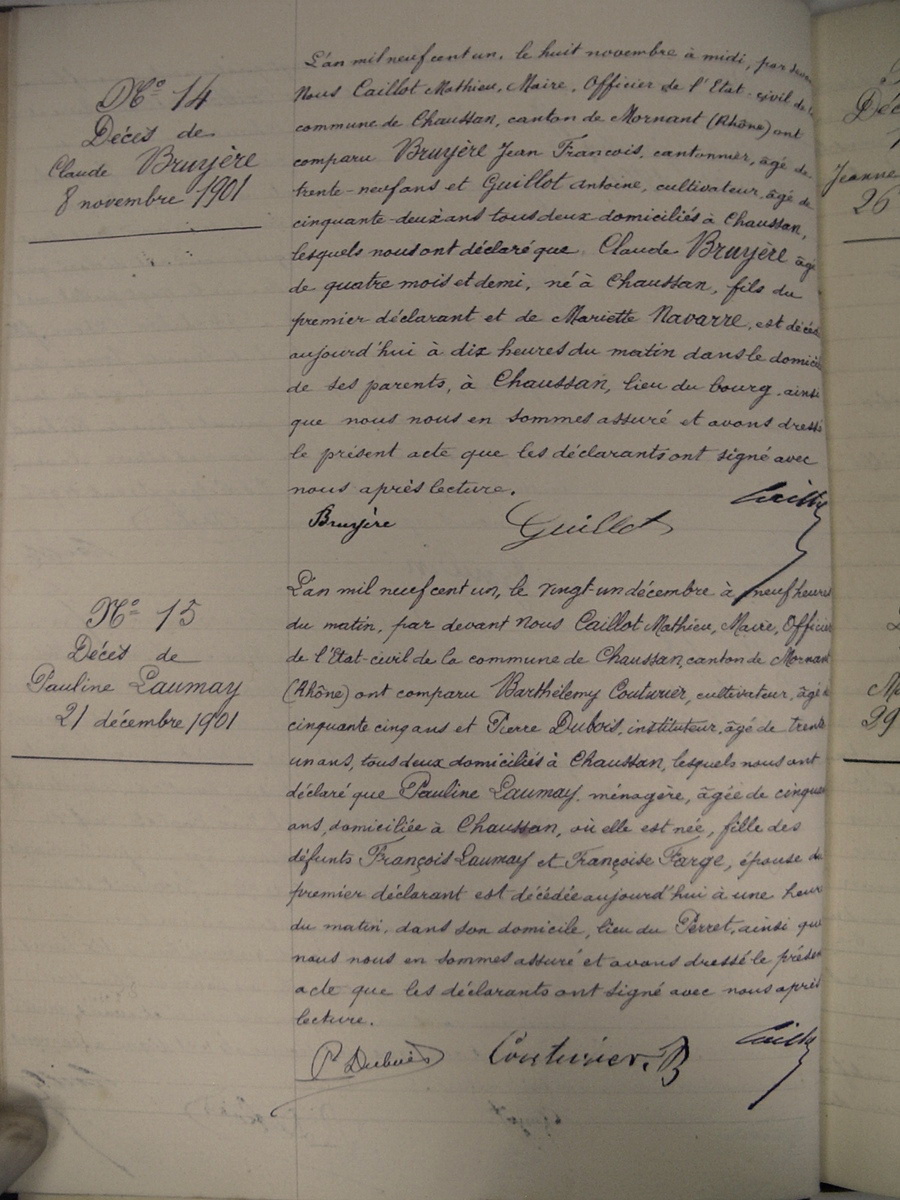 N° 14
Décès de
Claude Bruyère
8 novembre 1901
L'an mil neuf cent un, le huit novembre à midi, par devant
Nous Caillot Mathieu, Maire, Officier de l'Etat-civil de la
commune de Chaussan, canton de Mornant (Rhône) ont
comparu Bruyère Jean François, cantonnier, âgé de
trente-neuf ans et Guillot Antoine, cultivateur, âgé de
cinquante-deux ans tous deux domiciliés à Chaussan,
lesquels nous ont déclaré que Claude Bruyère âgé
de quatre mois et demi, né à Chaussan, fils du
premier déclarant et de Mariette Navarre, est décédé
aujourd'hui à dix heures du matin dans le domicile
de ses parents, à Chaussan, lieu du bourg, ainsi
que nous nous en sommes assuré et avons dressé
le présent acte que les déclarants ont signé avec
nous après lecture.
Bruyère Guillot
N° 15
Décès de
Pauline Laumay
21 décembre 1901
L'an mil neuf cent un, le vingt-un décembre à neuf heures
du matin, par devant Nous Caillot Mathieu, Maire, Officier
de l'Etat-civil de la commune de Chaussan, canton de Mornant
(Rhône) ont comparu Barthélemy Couturier, cultivateur, âgé de
cinquante cinq ans et Pierre Dubois, instituteur, âgé de trente
un ans, tous deux domiciliés à Chaussan, lesquels nous ont
déclaré que Pauline Laumay, ménagère, âgée de cinquante
ans, domiciliée à Chaussan, où elle est née, fille des
défunts François Laumay et Françoise Farge, épouse du
premier déclarant est décédée aujourd'hui à une heure
du matin, dans son domicile, lieu du Perret, ainsi que
nous nous en sommes assuré et avons dressé le présent
acte que les déclarants ont signé avec nous après
lecture.
P Dubois Couturier. B
Jeanne
26
29